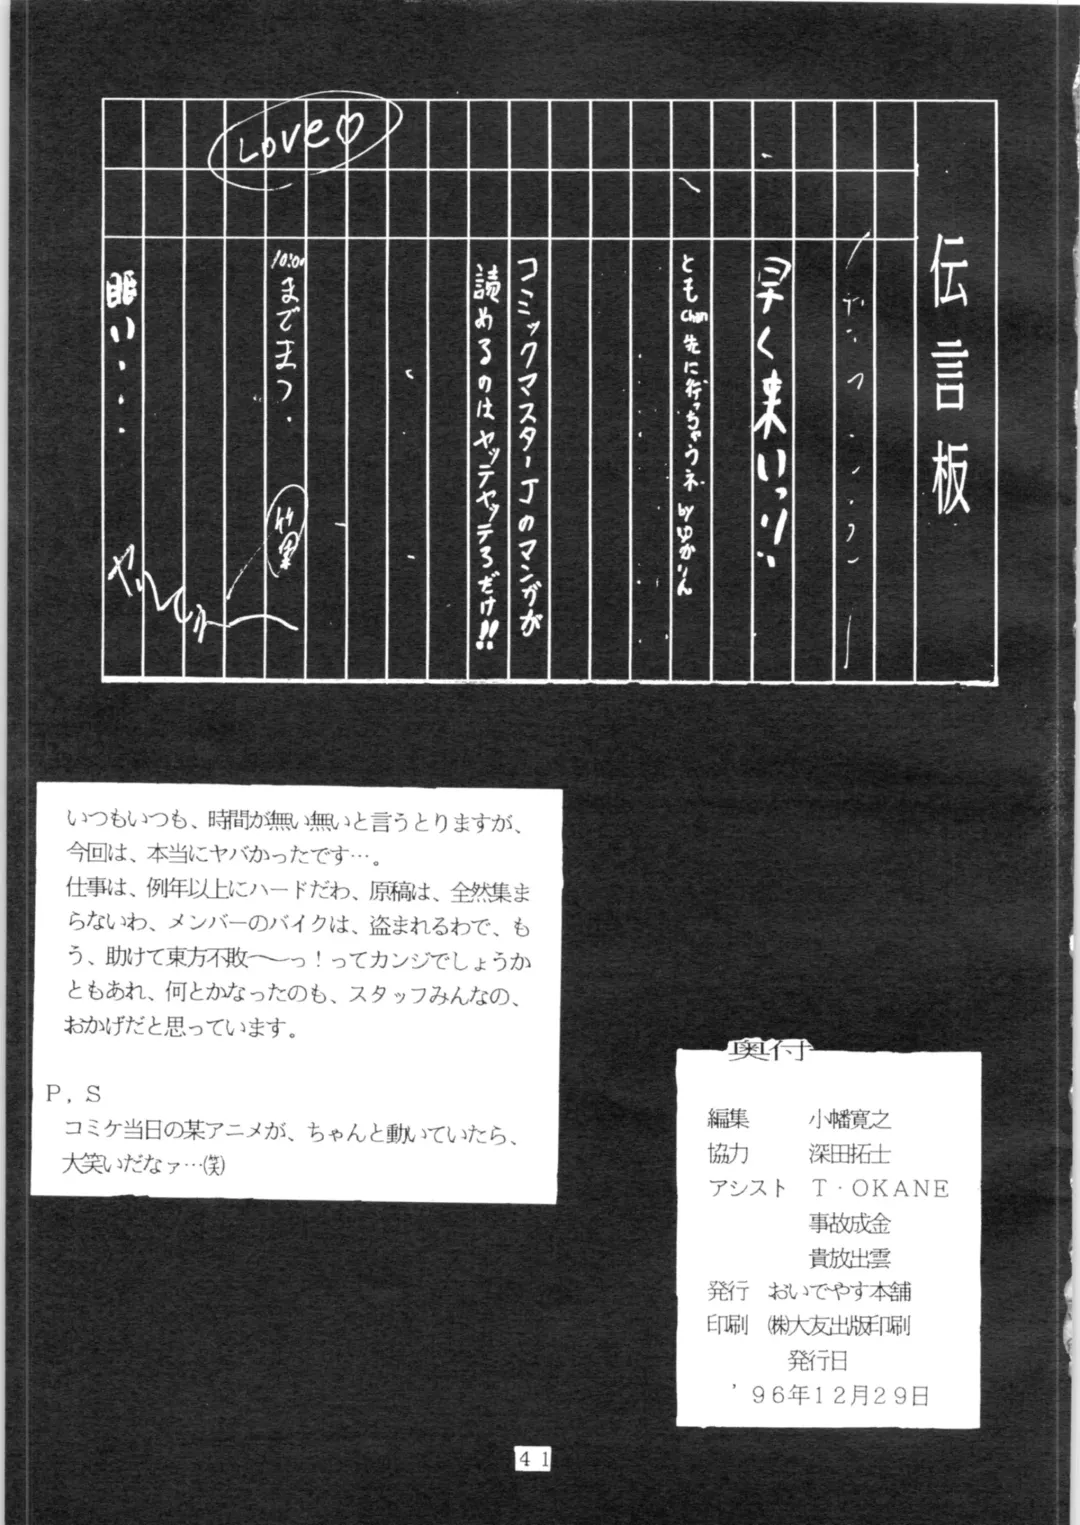 伝言板
早く来いっ!!
ともchan先に行っちゃうネ by ゆかりん
コミックマスターJのマンガが
読めるのはヤッテヤッテろだけ!!
LOVE♡
10:00までまつ.
眠い・・・
いつもいつも、時間が無い無いと言うとりますが、
今回は、本当にヤバかったです…。
仕事は、例年以上にハードだわ、原稿は、全然集ま
らないわ、メンバーのバイクは、盗まれるわで、も
う、助けて東方不敗〜〜っ！ってカンジでしょうか
ともあれ、何とかなったのも、スタッフみんなの、
おかげだと思っています。
Ｐ，Ｓ
コミケ当日の某アニメが、ちゃんと動いていたら、
大笑いだなァ…㈶
奥付
編集　小幡寛之
協力　深田拓士
アシスト　Ｔ・ＯＫＡＮＥ
事故成金
貴放出雲
発行　おいでやす本舗
印刷　㈱大友出版印刷
発行日
’９６年１２月２９日
４１